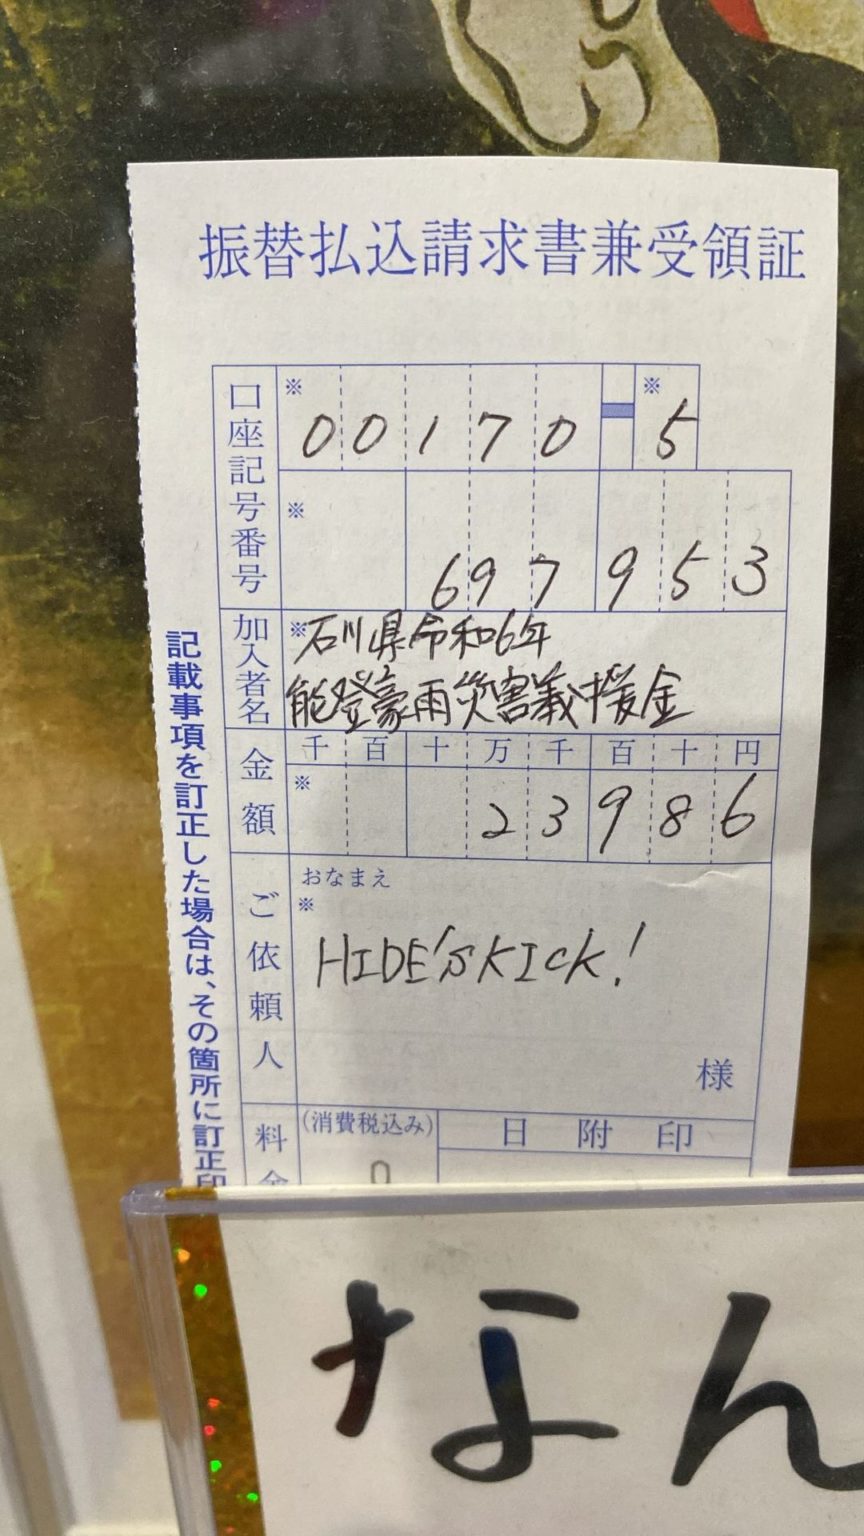 振替払込請求書兼受領証
口座記号番号
※ 00170-※ 5
※ 697953
加入者名
※石川県令和6年
能登豪雨災害義援金
金額
千 百 十 万 千 百 十 円
※ 23986
ご依頼人
おなまえ
※
HIDE'S KICK!
様
料金
(消費税込み)
0
日附印
記載事項を訂正した場合は、その箇所に訂正印
なん